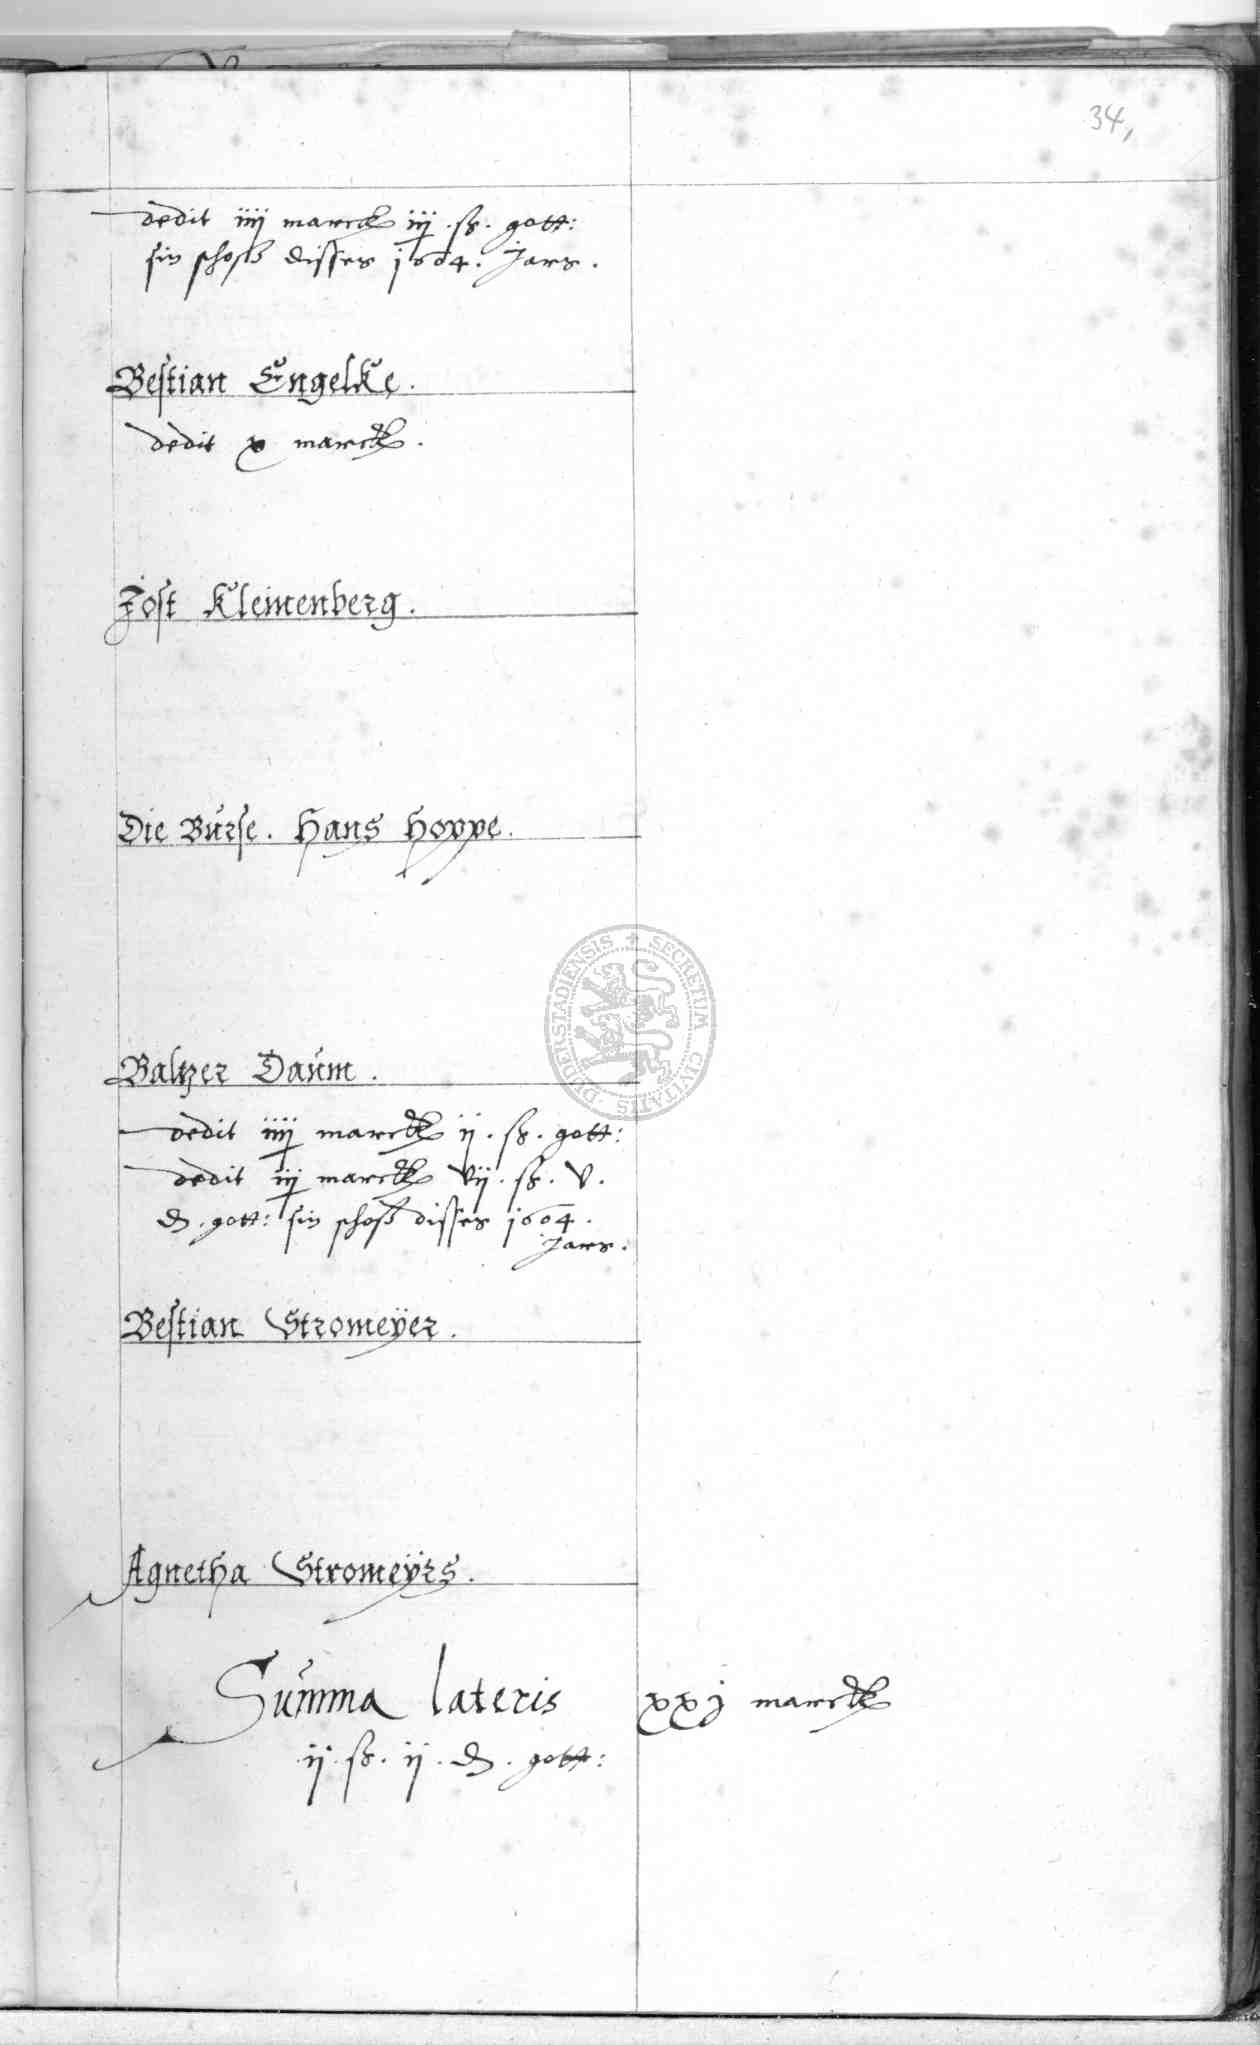 34,
dedit iiij marck iij . ß . gott:
sin schoß disses 1604. Jars .
Bestian Engelke .
dedit x marck .
Jost Kleinenberg .
Die Burse . Hans Hoppe .
Baltzer Daum .
dedit iiij marck ij . ß . gott:
dedit iij marck vij . ß . v .
₰ . gott: sin schoß disses 1604 .
Jars .
Bestian Stromeÿer .
Agnetha Stromeÿrs .
Summa lateris xxj marck
ij . ß . ij . ₰ . gott:
SECRETUM CIVITATIS DUDERSTADIENSIS